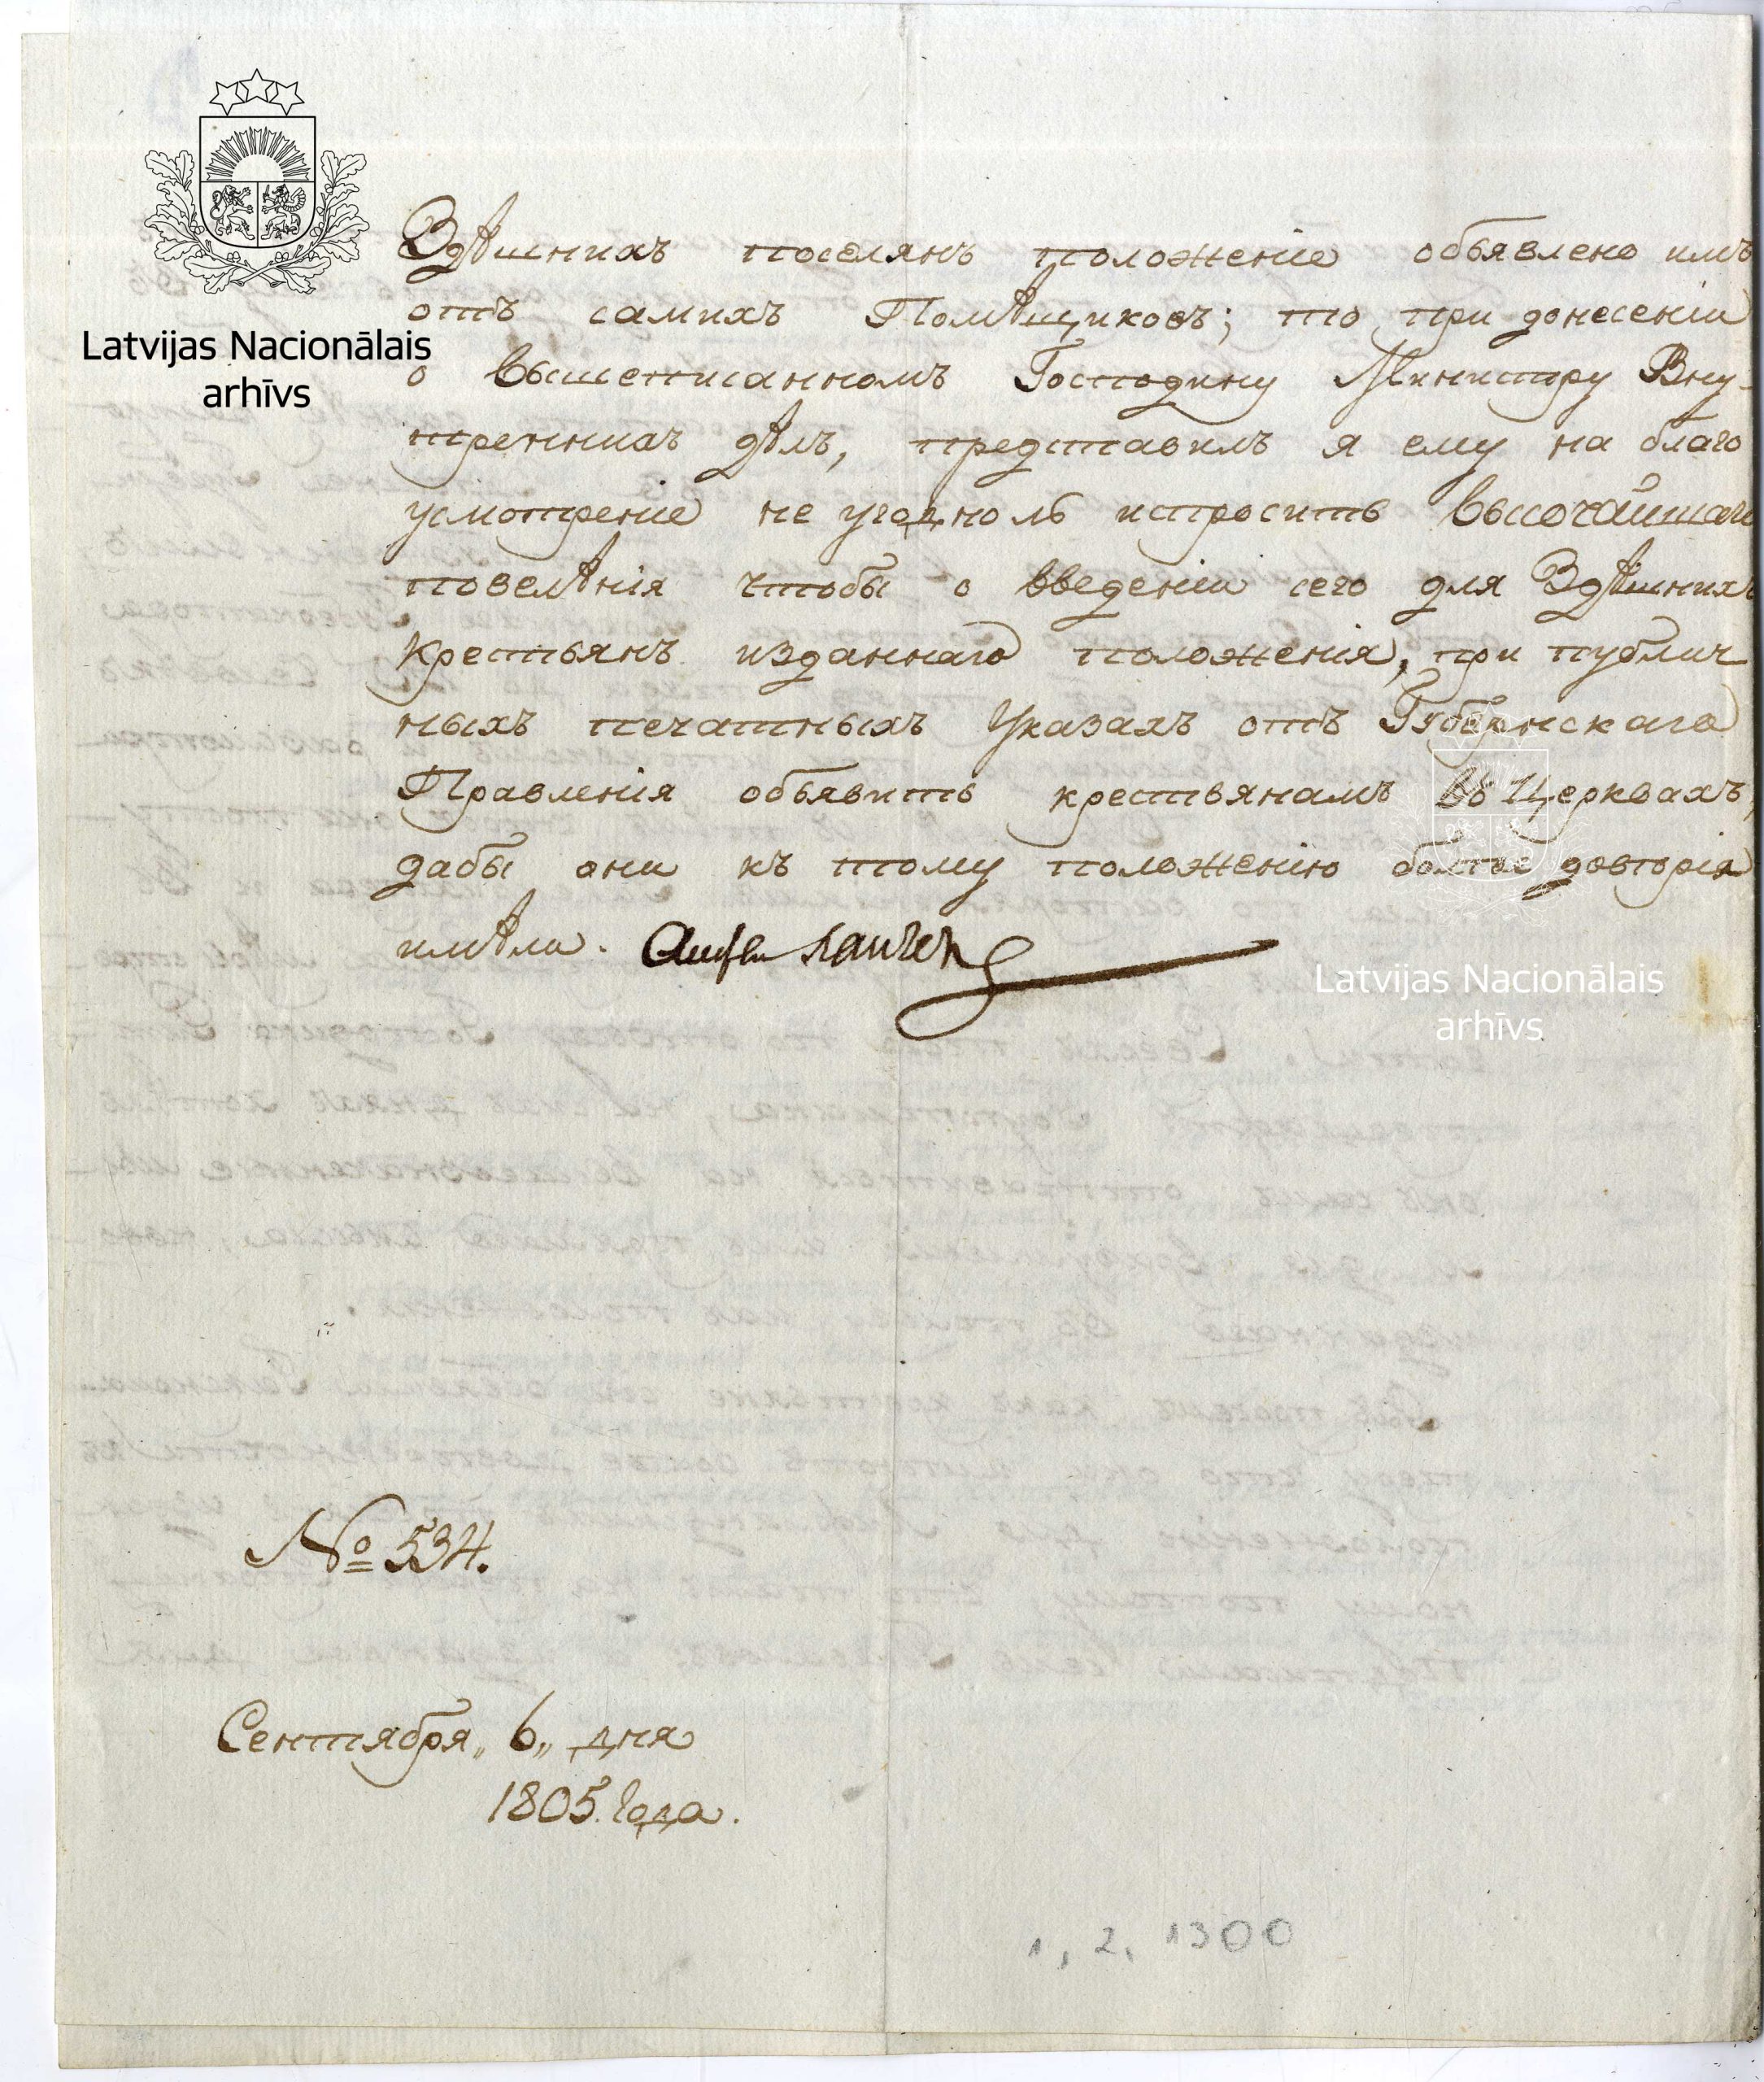 Latvijas Nacionālais
arhīvs
Здѣшнихъ поселянъ положенiе объявлено имъ
отъ самихъ Помѣщиковъ; то при донесенiи
о вышеписанномъ Господину Министру Вну-
треннихъ дѣлъ, представилъ я ему на благо
усмотренiе не угодноль испросить Высочайшаго
повелѣнiя чтобы о введенiи сего для Здѣшнихъ
Крестьянъ изданнаго положенiя, при публич
ныхъ печатныхъ Указахъ отъ Губернскаго
Правленiя объявить крестьянамъ въ Церквахъ,
дабы они къ тому положенiю болѣе довѣрiя
имѣли.
Latvijas Nacionālais
arhīvs
№ 534.
Сентября „ 6 „ дня
1805. Года.
1, 2, 1300